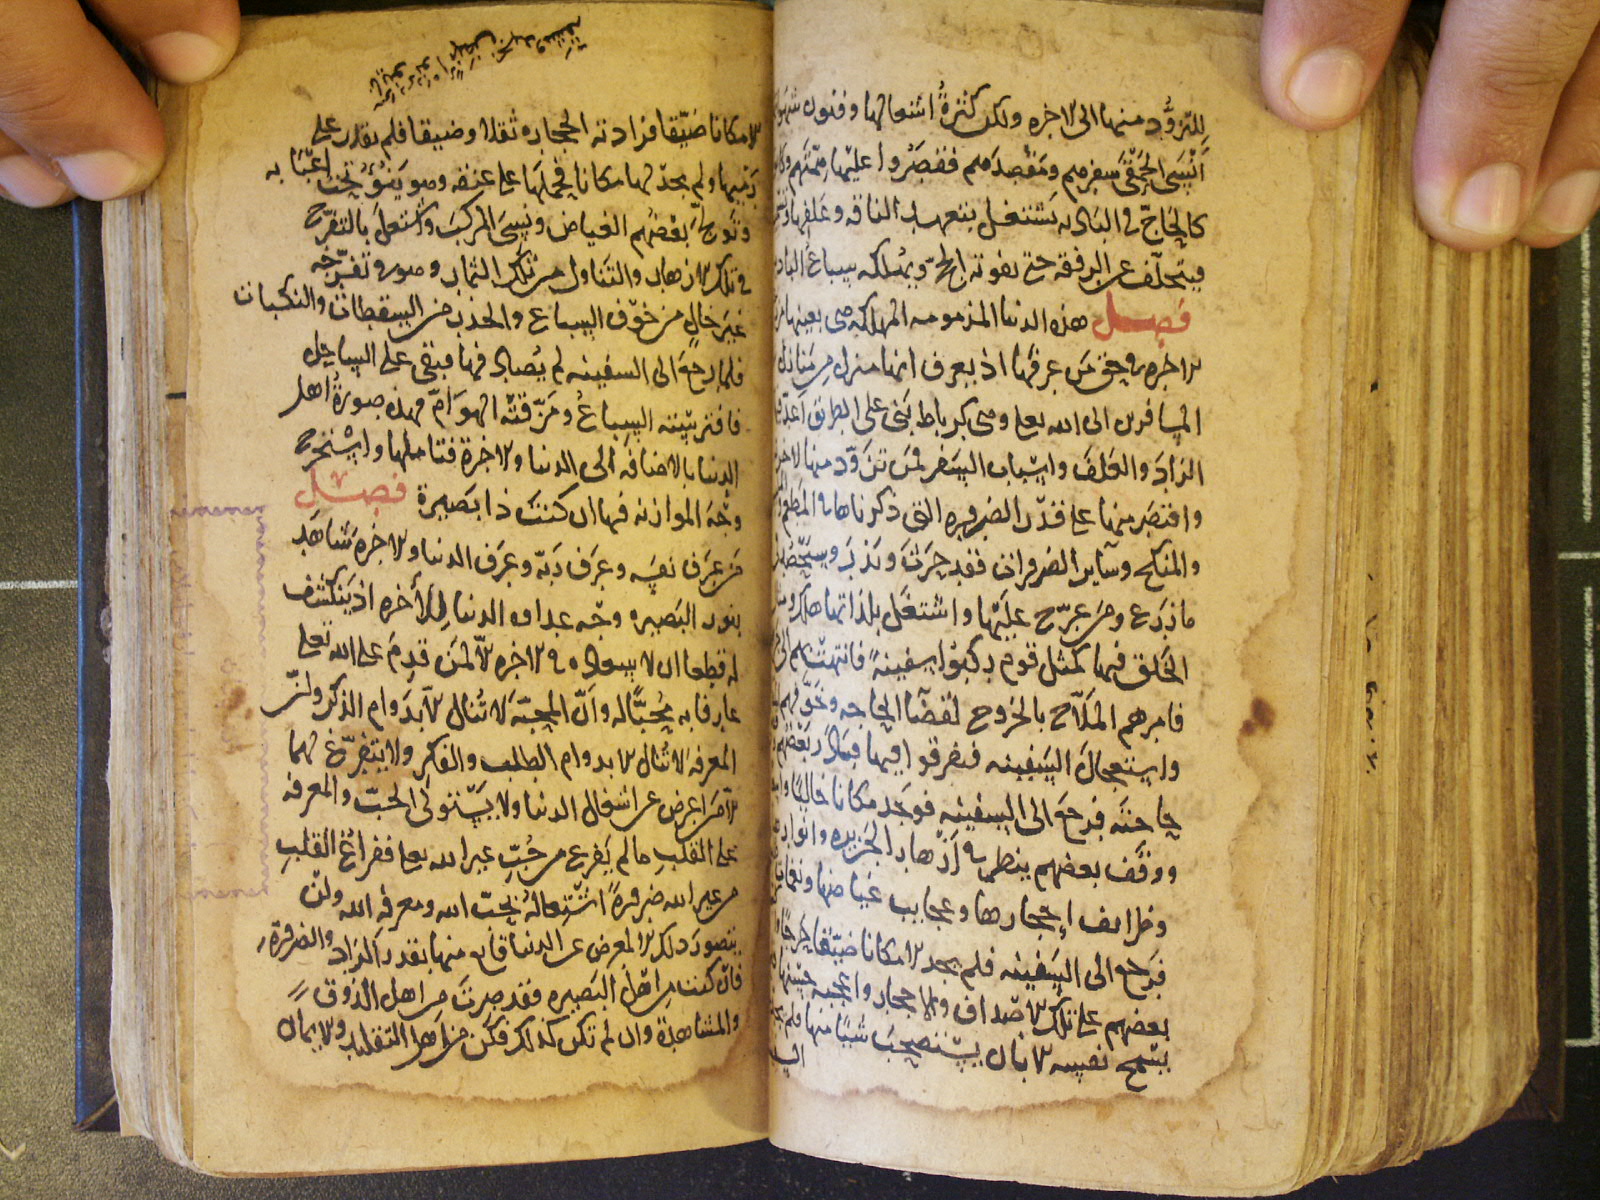 للتزود منها الى الاخره ولكن كثرة اشتغالها وفنون شهو
انسى الحمقى سفرهم ومقصدهم فقصروا عليها همتهم وكا
كالحاج في الباديه يشتغل بتعهد الناقه وعلفها
فيتخلف عن الرفقه حتى يفوته الحج ويهلكه سباع الباد
فصل هذه الدنيا المذمومه المهلكه هي بعينها
الاخره في حق من عرفها اذ يعرف انها منزل من منازل
المسافرين الى الله تعلى وهي كرباط بني على الطريق اعد
الزاد والعلف واسباب السفر فمن تزود منها لاخر
واقتصر منها على قدر الضروره التي ذكرناها في المطعم
والمنكح وساير الضرورات فقد حرث وبذر وسيحصد
ما زرع ومن عرج عليها واشتغل بلذاتها هلك
الخلق فيها كمثل قوم ركبوا سفينة فانتهت بهم الى
فامرهم الملاح بالخروج لقضا الحاجه وخوفهم
واستعجال السفينه فتفرقوا فيها فبادر بعضهم
حاجته فرجع الى السفينه فوجد مكانا خاليا وا
ووقف بعضهم ينظر في ازهار الجزيره وانوارها
وظرايف احجارها وعجايب غياضها ونغما
فرجع الى السفينه فلم يجد الا مكانا ضيقا حرجا
بعضهم على تلك الاصداف والاحجار واعجبه حسنها
يسمح نفسه الا بان يستصحب شيئا منها فلم يجد
الا مكانا ضيقا فزادته الحجاره ثقلا وضيقا فلم يقدر على
رميها ولم يجد لها مكانا فحملها على عنقه وهو ينوء تحت اعبائه
وتولج بعضهم الغياض ونسى المركب واشتغل بالتفرج
في تلك الازهار والتناول من تلك الثمار وهو في تفرجه
غير خال من خوف السباع والحذر من السقطات والنكبات
فلما رجع الى السفينه لم يصادفها فبقى على الساحل
فافترسته السباع ومزقته الهوام فهذه صورة اهل
الدنيا بالاضافه الى الدنيا والاخرة فتاملها واستخرج
وجه الموازنه فيها ان كنت ذا بصيرة فصل
من عرف نفسه وعرف ربه وعرف الدنيا والاخره شاهد
بنور البصيره وجه عداوه الدنيا للاخره اذ ينكشف
له قطعا ان لا سعاده في الاخره الا لمن قدم على الله تعلى
عارفا به محبا له وان المحبة لا تنال الا بدوام الذكر وان
المعرفه لا تنال الا بدوام الطلب والفكر ولا يتفرغ لهما
الا من اعرض عن اشغال الدنيا ولا يستولى الحب والمعرفه
على القلب ما لم يفرغ من حب غير الله تعلى ففراغ القلب
من غير الله ضرورة اشتغاله بحب الله ومعرفة الله ولن
يتصور ذلك الا لمعرض عن الدنيا قانع منها بقدر الزاد والضرورة
فان كنت من اهل البصيره فقد صرت من اهل الذوق
والمشاهدة وان لم تكن كذلك فكن من اهل التقليد والايمان